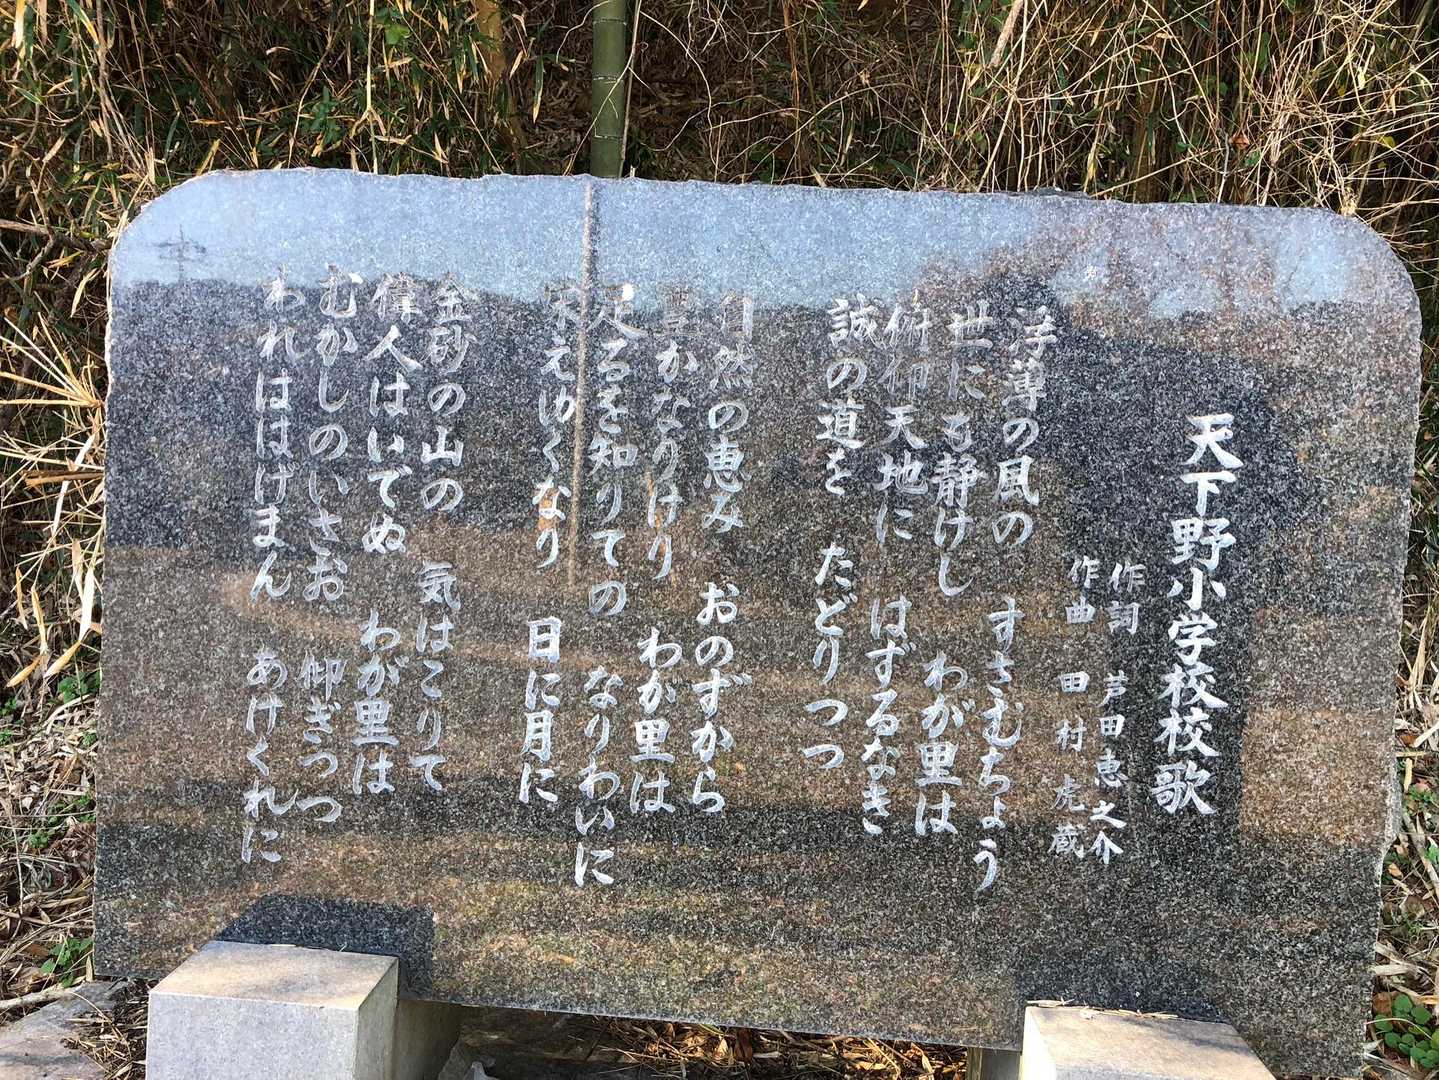 天下野小学校校歌
作詞 芦田恵之介
作曲 田村虎蔵
浮薄の風の すさむちょう
世にも静けし わが里は
俯仰天地に はずるなき
誠の道を たどりつつ
自然の恵み おのずから
豊かなりけり わが里は
足るを知りての なりわいに
栄えゆくなり 日に月に
金砂の山の 気はこりて
偉人はいでぬ わが里は
むかしのいさお 仰ぎつつ
われははげまん あけくれに